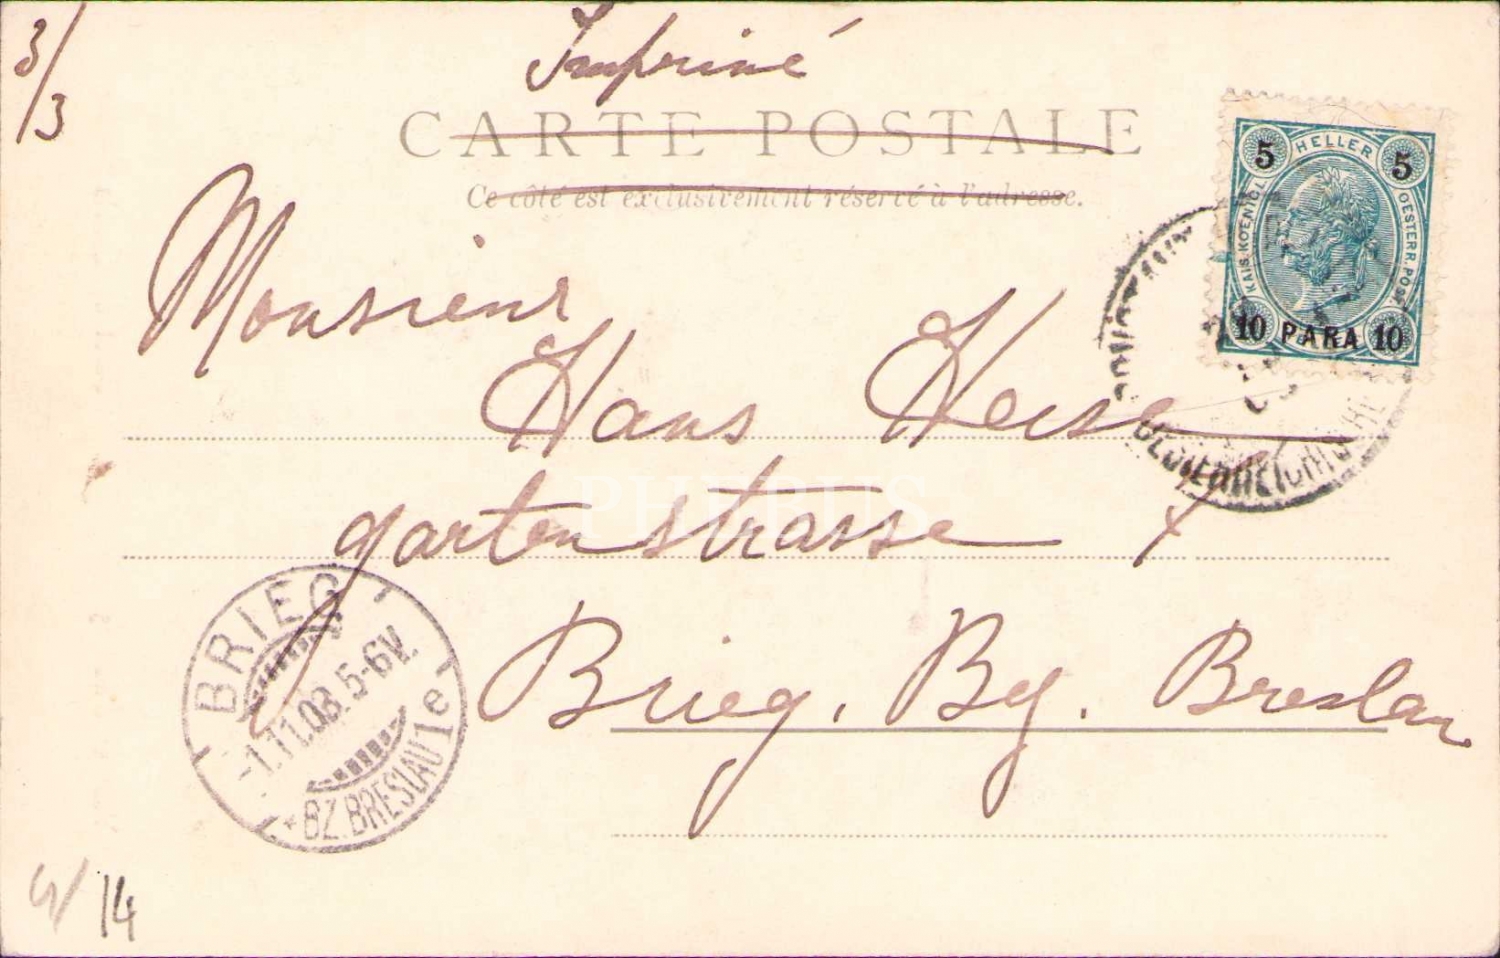 3/3
Imprimé
CARTE POSTALE
Ce côté est exclusivement réservé à l'adresse.
5 HELLER 5
KAIS. KOENIGL. OESTERR. POST
10 PARA 10
Monsieur
Hans Heise
OESTERREICHISCHE
gartenstrasse
PHEBUS
Brieg. Bz. Breslau
BRIEG
-1.11.03. 5-6V.
* BZ. BRESLAU 1e
14